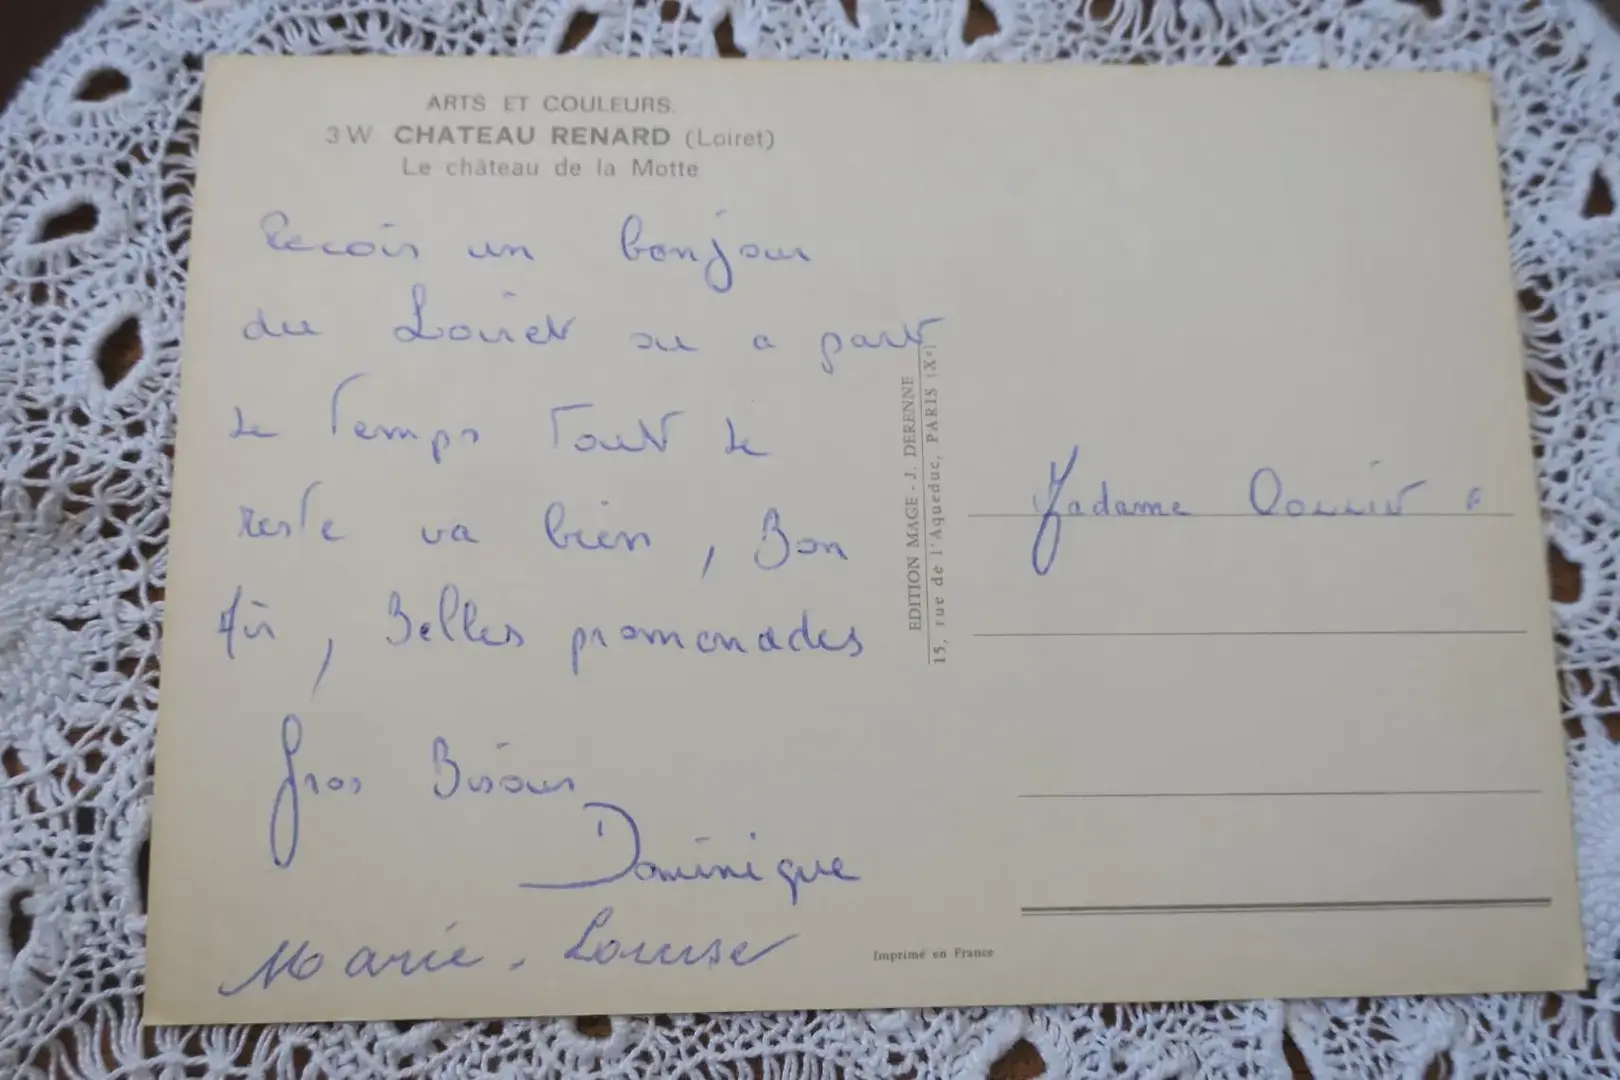 ARTS ET COULEURS.
3 W CHATEAU RENARD (Loiret)
Le château de la Motte
Recois un bonjour
du Loiret ou a part
le temps tout le
reste va bien, Bon
Air, Belles promenades
Gros Bisous
Dominique
Marie-Louise
EDITION MAGE - J. DERENNE
15, rue de l'Aqueduc, PARIS (Xe)
Madame
Imprimé en France